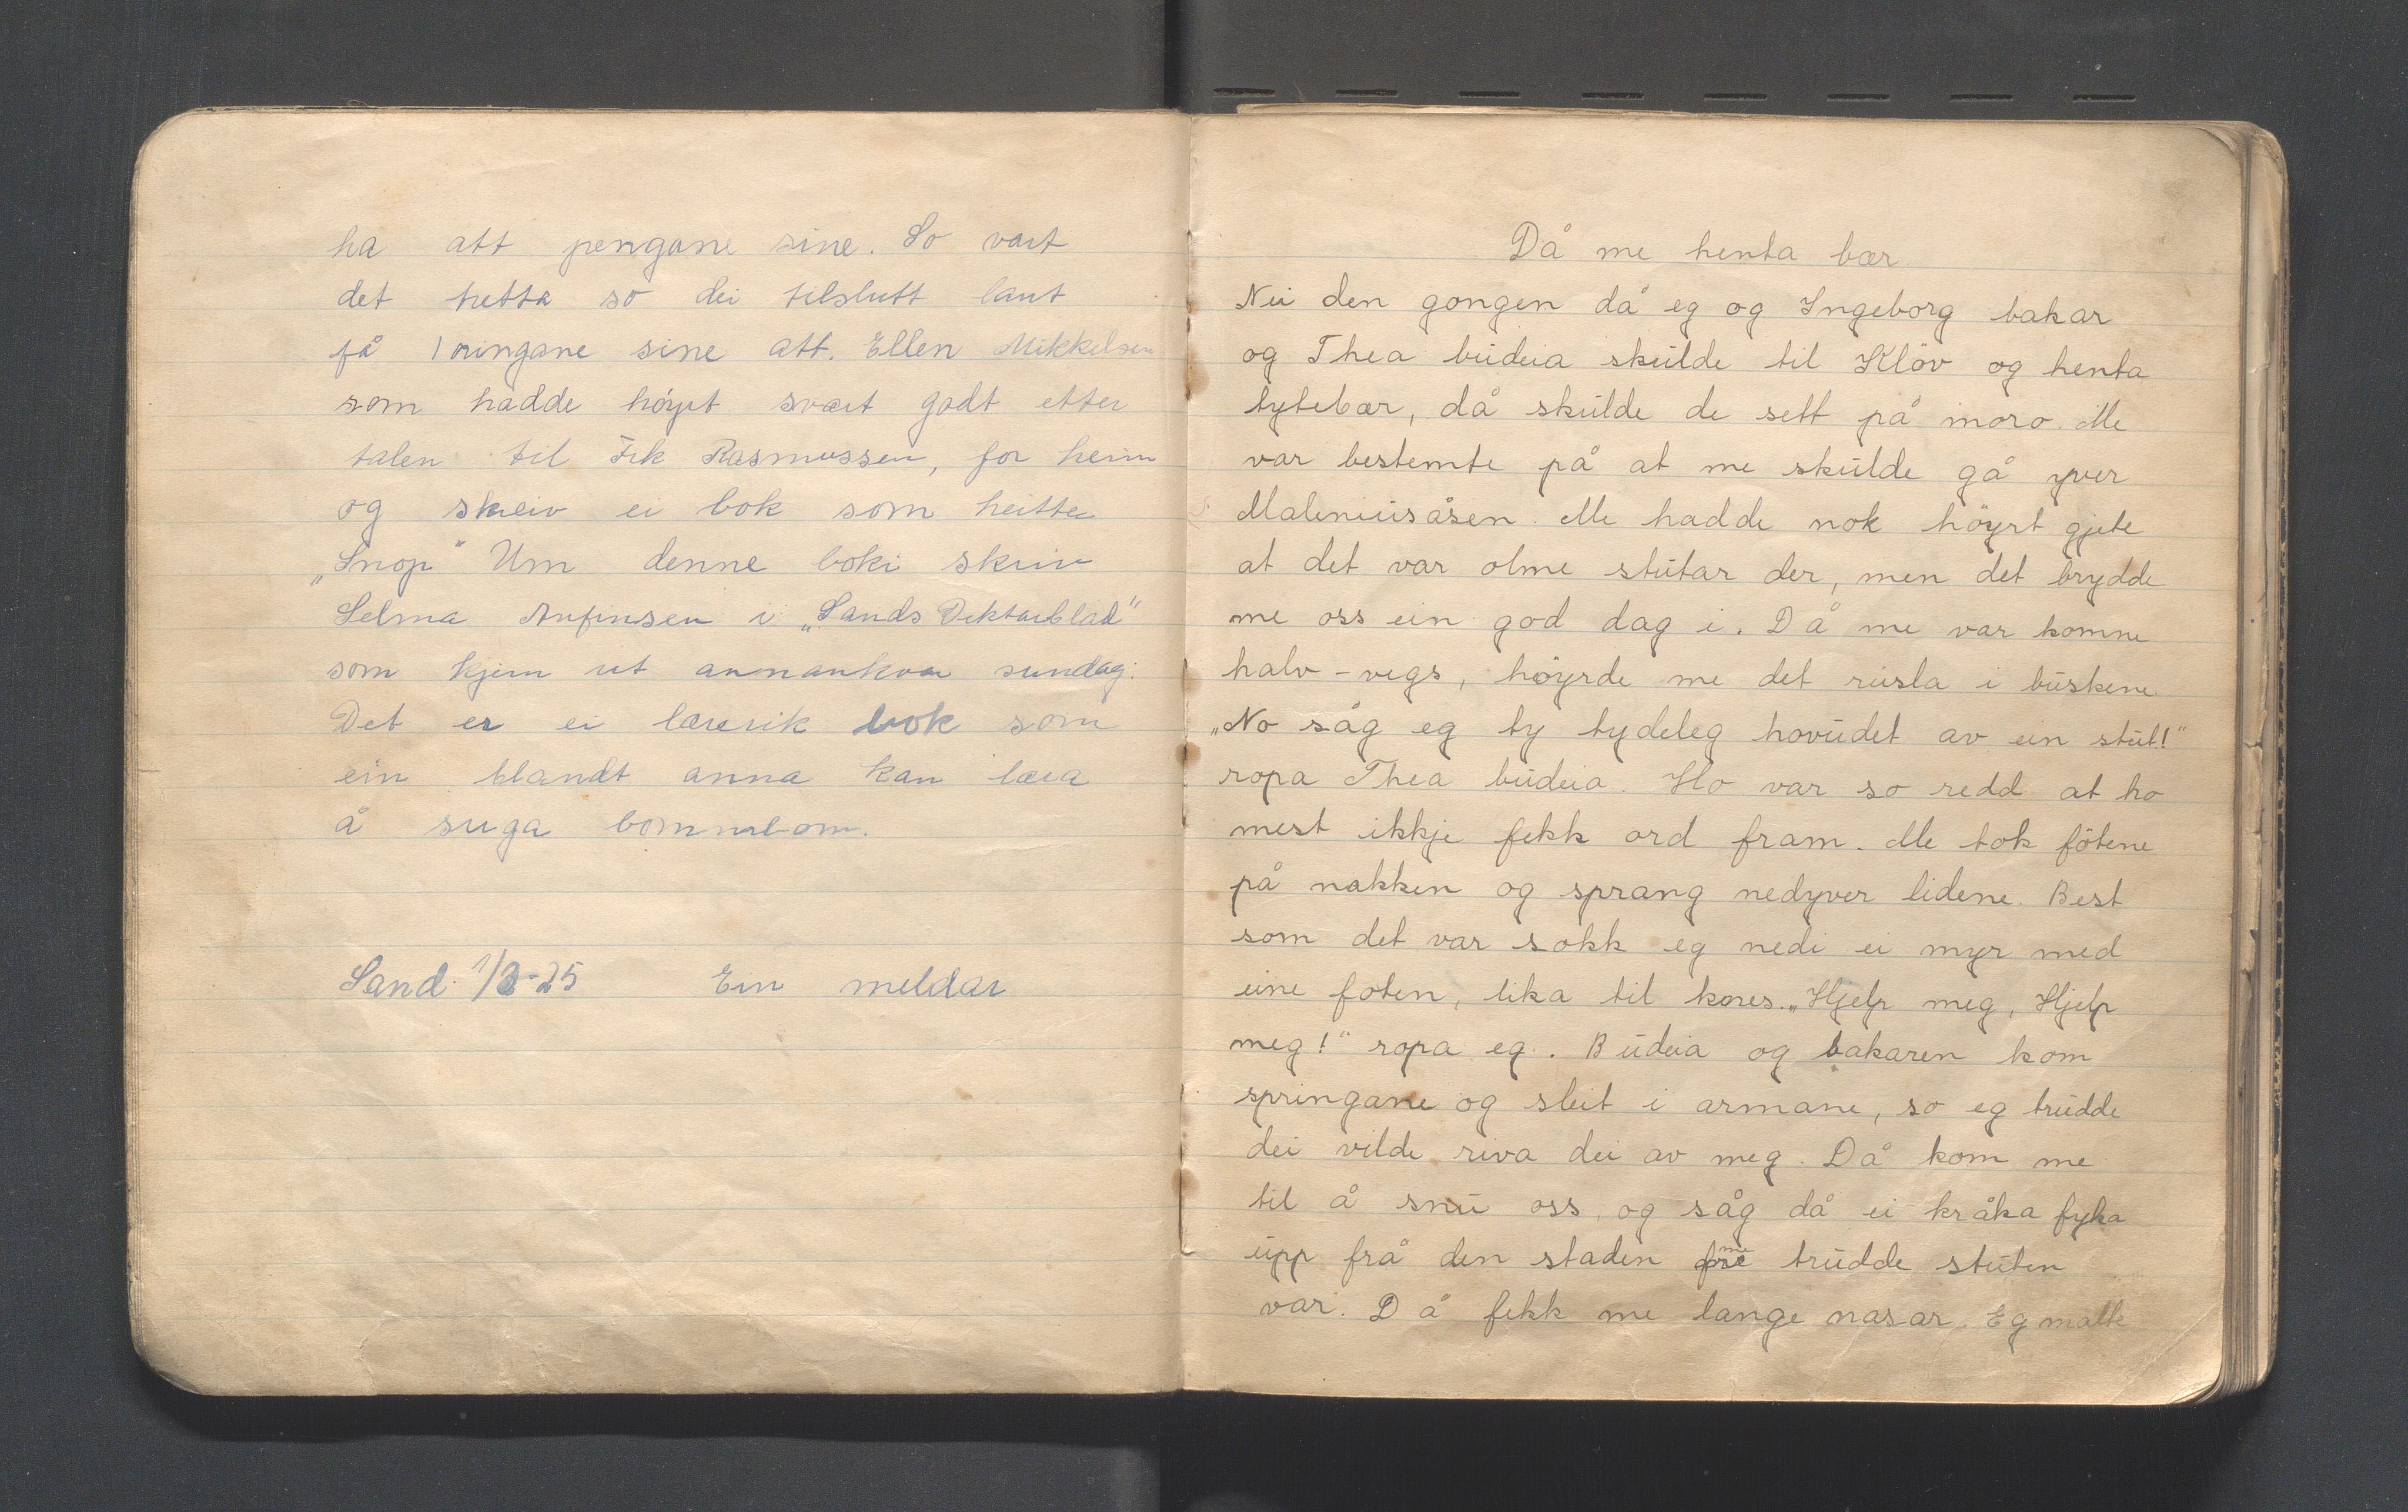 ha att pengane sine. So vart
det tretta so dei tilslutt laut
få 1 øringane sine att. Ellen Mikkelsen
som hadde høyrt svært godt etter
talen til Frk Rasmussen, for heim
og skreiv ei bok som heitte
„Snop“ Um denne boki skriv
Selma Anfinsen i „Sands Diktarblad“
som kjem ut annankvar sundag.
Det er ei lærerik bok som
ein blandt anna kan læra
å suga bommelom.
Sand 1/3-25 Ein meldar
Då me henta bær.
Nei den gongen då eg og Ingeborg bakar
og Thea budeia skulde til Klöv og henta
tytebær, då skulde de sett på moro. Me
var bestemte på at me skulde gå yver
Maleniusåsen. Me hadde nok höyrt gjete
at det var olme stutar der, men det brydde
me oss ein god dag i. Då me var komne
halv-vegs, höyrde me det rusla i buskene.
„No såg eg ty tydeleg hovudet av ein stut!“
ropa Thea budeia. Ho var so redd at ho
mest ikkje fekk ord fram. Me tok fötene
på nakken og sprang nedyver lidene. Best
som det var sokk eg nedi ei myr med
eine foten, lika til knes. „Hjelp meg, Hjelp
meg!“ ropa eg. Budeia og bakaren kom
springane og sleit i armane, so eg trudde
dei vilde riva dei av meg. Då kom me
til å snu oss, og såg då ei kråka fyka
upp frå den staden me trudde stuten
var. Då fekk me lange nasar. Eg måtte